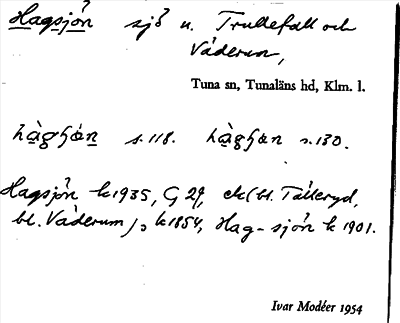 Hagsjön sjö u. Trullefall och
Våderum,
Tuna sn, Tunaläns hd, Klm. l.
s. 118. s. 130.
Hagsjön k 1935, G 29, ek(bl. Tålleryd,
bl. Våderum) k 1854, Hag-sjön k 1901.
Ivar Modéer 1954